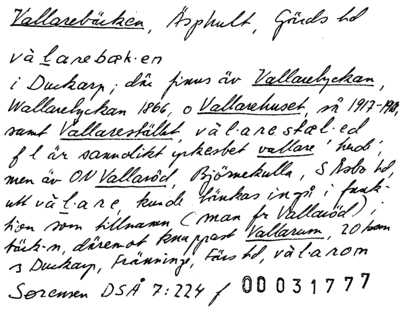 Vallarebäcken, Äsphult, Gärds hd
vàlarebæk·en
i Duckarp; där finns äv Vallarelyckan,
Wallarelyckan 1866, o Vallarehuset, så 1917-
samt Vallarestället, vàl·arestæl·ed
f l är sanndikt yrkesbet vallare 'herde',
men äv ON Vallaröd, Björnekulla, S Åsbo hd,
utt vàl·are, kunde tänkas ingå i funk-
tion som tillnamn (man fr Vallaröd);
däremot knappast Vallarum, 20 km
s Duckarp, Fränninge, Färs hd, vàl·arom
Sørensen DSÅ 7:224 f 00031777